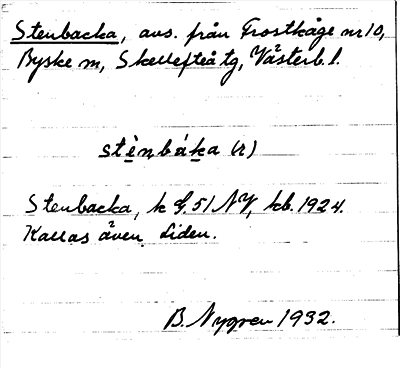 Stenbacka, avs. från Frostkåge nr 10,
Byske sn, Skellefteå tg, Västerb. l.
stènbáka (r)
Stenbacka, k G. 51 NV, kb. 1924.
Kallas även Liden.
B. Nygren 1932.